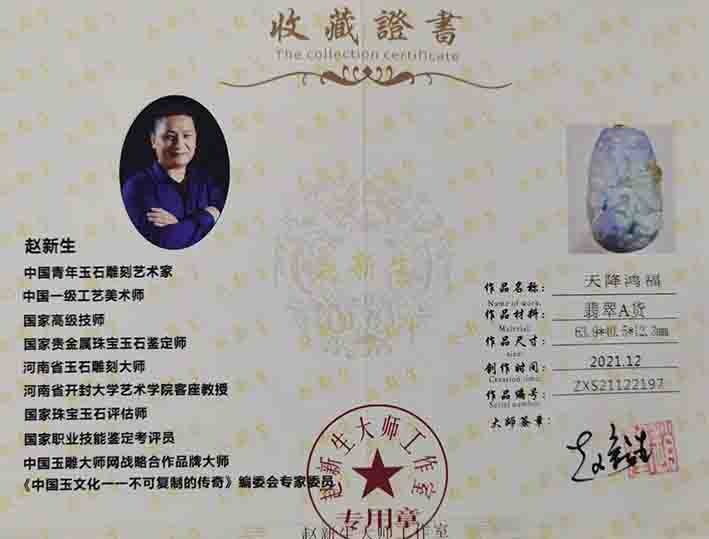 收藏證書
The collection certificate
赵新生
中国青年玉石雕刻艺术家
中国一级工艺美术师
国家高级技师
国家贵金属珠宝玉石鉴定师
河南省玉石雕刻大师
河南省开封大学艺术学院客座教授
国家珠宝玉石评估师
国家职业技能鉴定考评员
中国玉雕大师网战略合作品牌大师
《中国玉文化一一不可复制的传奇》编委会专家委员
作品名称： 天降鸿福
Name of work:
作品材料： 翡翠A货
Material:
作品尺寸： 63.9*40.5*12.3mm
size:
创作时间： 2021.12
Creation time:
作品编号： ZXS21122197
Serial number:
大师签章：
赵新生
赵新生大师工作室
专用章
赵新生大师工作室